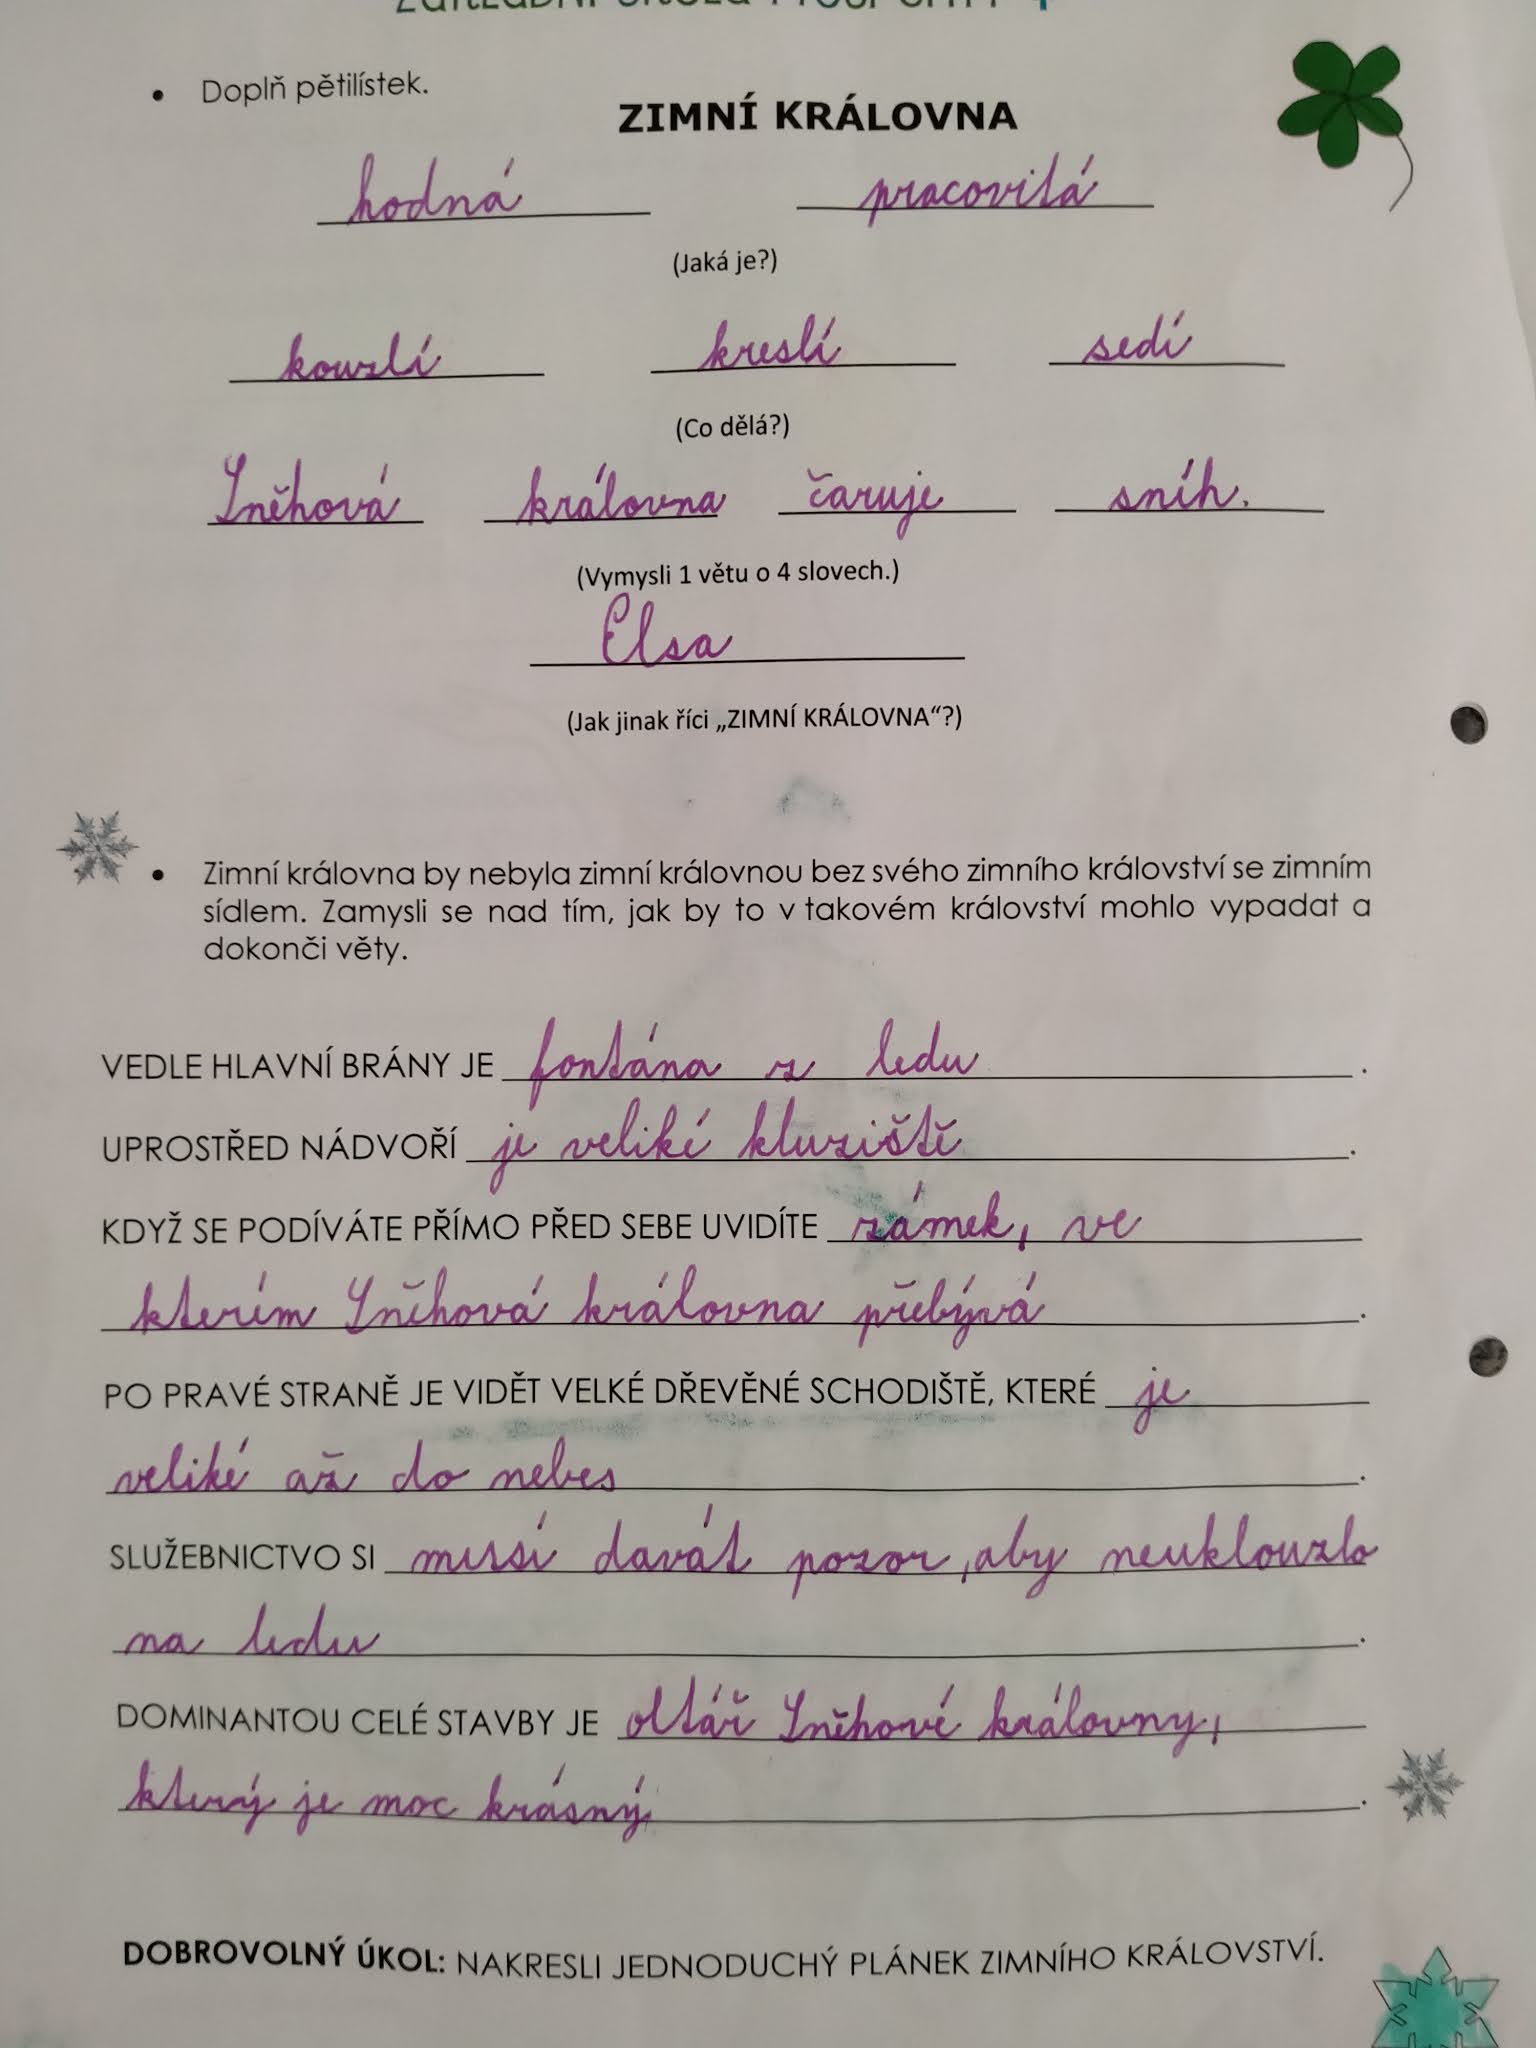 • Doplň pětilístek.
ZIMNÍ KRÁLOVNA
hodná pracovitá
(Jaká je?)
kouzlí kreslí sedí
(Co dělá?)
Sněhová královna čaruje sníh.
(Vymysli 1 větu o 4 slovech.)
Elsa
(Jak jinak říci „ZIMNÍ KRÁLOVNA“?)
• Zimní královna by nebyla zimní královnou bez svého zimního království se zimním
sídlem. Zamysli se nad tím, jak by to v takovém království mohlo vypadat a
dokonči věty.
VEDLE HLAVNÍ BRÁNY JE fontána z ledu.
UPROSTŘED NÁDVOŘÍ je veliké kluziště.
KDYŽ SE PODÍVÁTE PŘÍMO PŘED SEBE UVIDÍTE zámek, ve
kterém Sněhová královna přebývá.
PO PRAVÉ STRANĚ JE VIDĚT VELKÉ DŘEVĚNÉ SCHODIŠTĚ, KTERÉ je
veliké až do nebes.
SLUŽEBNICTVO SI musí davát pozor, aby neuklouzlo
na ledu.
DOMINANTOU CELÉ STAVBY JE oltář Sněhové královny,
který je moc krásný.
DOBROVOLNÝ ÚKOL: NAKRESLI JEDNODUCHÝ PLÁNEK ZIMNÍHO KRÁLOVSTVÍ.